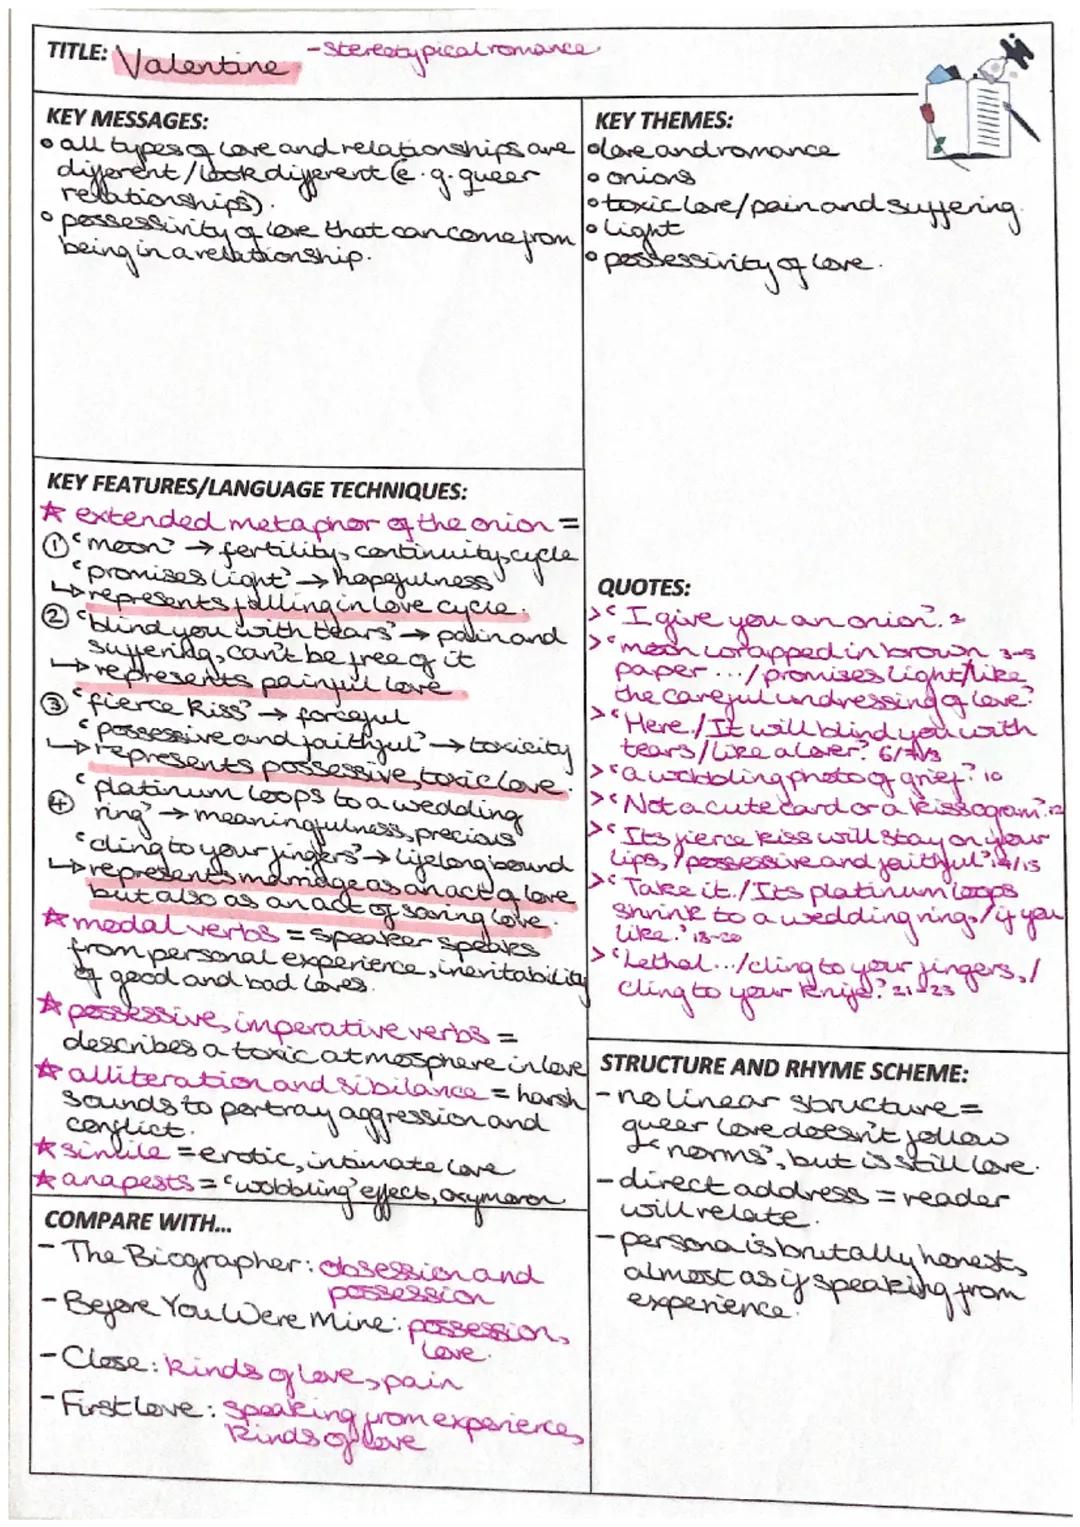 TITLE: Valentine - Stereotypical romance.
KEY MESSAGES:
• all types of love and relationships are
different / look different (e.g. queer
relationships).
• possessivity of love that can come from
being in a relationship.
KEY THEMES:
• love and romance
• onions
• toxic love/pain and suffering.
• light
• possessivity of love.
KEY FEATURES/LANGUAGE TECHNIQUES:
☆ extended metaphor of the onion =
① 'moon' → fertility, continuity, cycle
'promises light' → hopefulness
↳ represents falling in love cycle.
② 'blind you with tears' → pain and
suffering, can't be free of it
↳ represents painful love
③ 'fierce kiss' → forceful
'possessive and faithful' → toxicity
↳ represents possessive, toxic love.
④ 'platinum loops to a wedding
ring' → meaningfulness, precious
'cling to your fingers' → lifelong bound
↳ represents marriage as an act of love
but also as an act of saving love.
☆ modal verbs = speaker speaks
from personal experience, inevitability
of good and bad loves.
☆ possessive, imperative verbs =
describes a toxic atmosphere in love
☆ alliteration and sibilance = harsh
sounds to portray aggression and
conflict.
☆ simile = erotic, intimate love
☆ anapests = 'wobbling' effect, oxymoron
QUOTES:
> 'I give you an onion'. 2
> 'moon wrapped in brown 3-5
paper .../promises light/like
the careful undressing of love'.
> 'Here./It will blind you with
tears/like a lover'. 6/7/8
> 'a wobbling photo of grief'. 10
> 'Not a cute card or a kissogram'. 12
> 'Its fierce kiss will stay on your
lips, / possessive and faithful' 14/15
> 'Take it./Its platinum loops
shrink to a wedding ring,/if you
like.' 18-20
> 'Lethal.../cling to your fingers,/
cling to your knife.' 21-23
STRUCTURE AND RHYME SCHEME:
- no linear structure =
queer love doesn't follow
'norms', but is still love.
- direct address = reader
will relate.
- persona is brutally honest,
almost as if speaking from
experience.
COMPARE WITH...
- The Biographer: obsession and
possession
- Before You Were Mine: possession,
love.
- Close: kinds of love, pain
- First Love: speaking from experience,
kinds of love